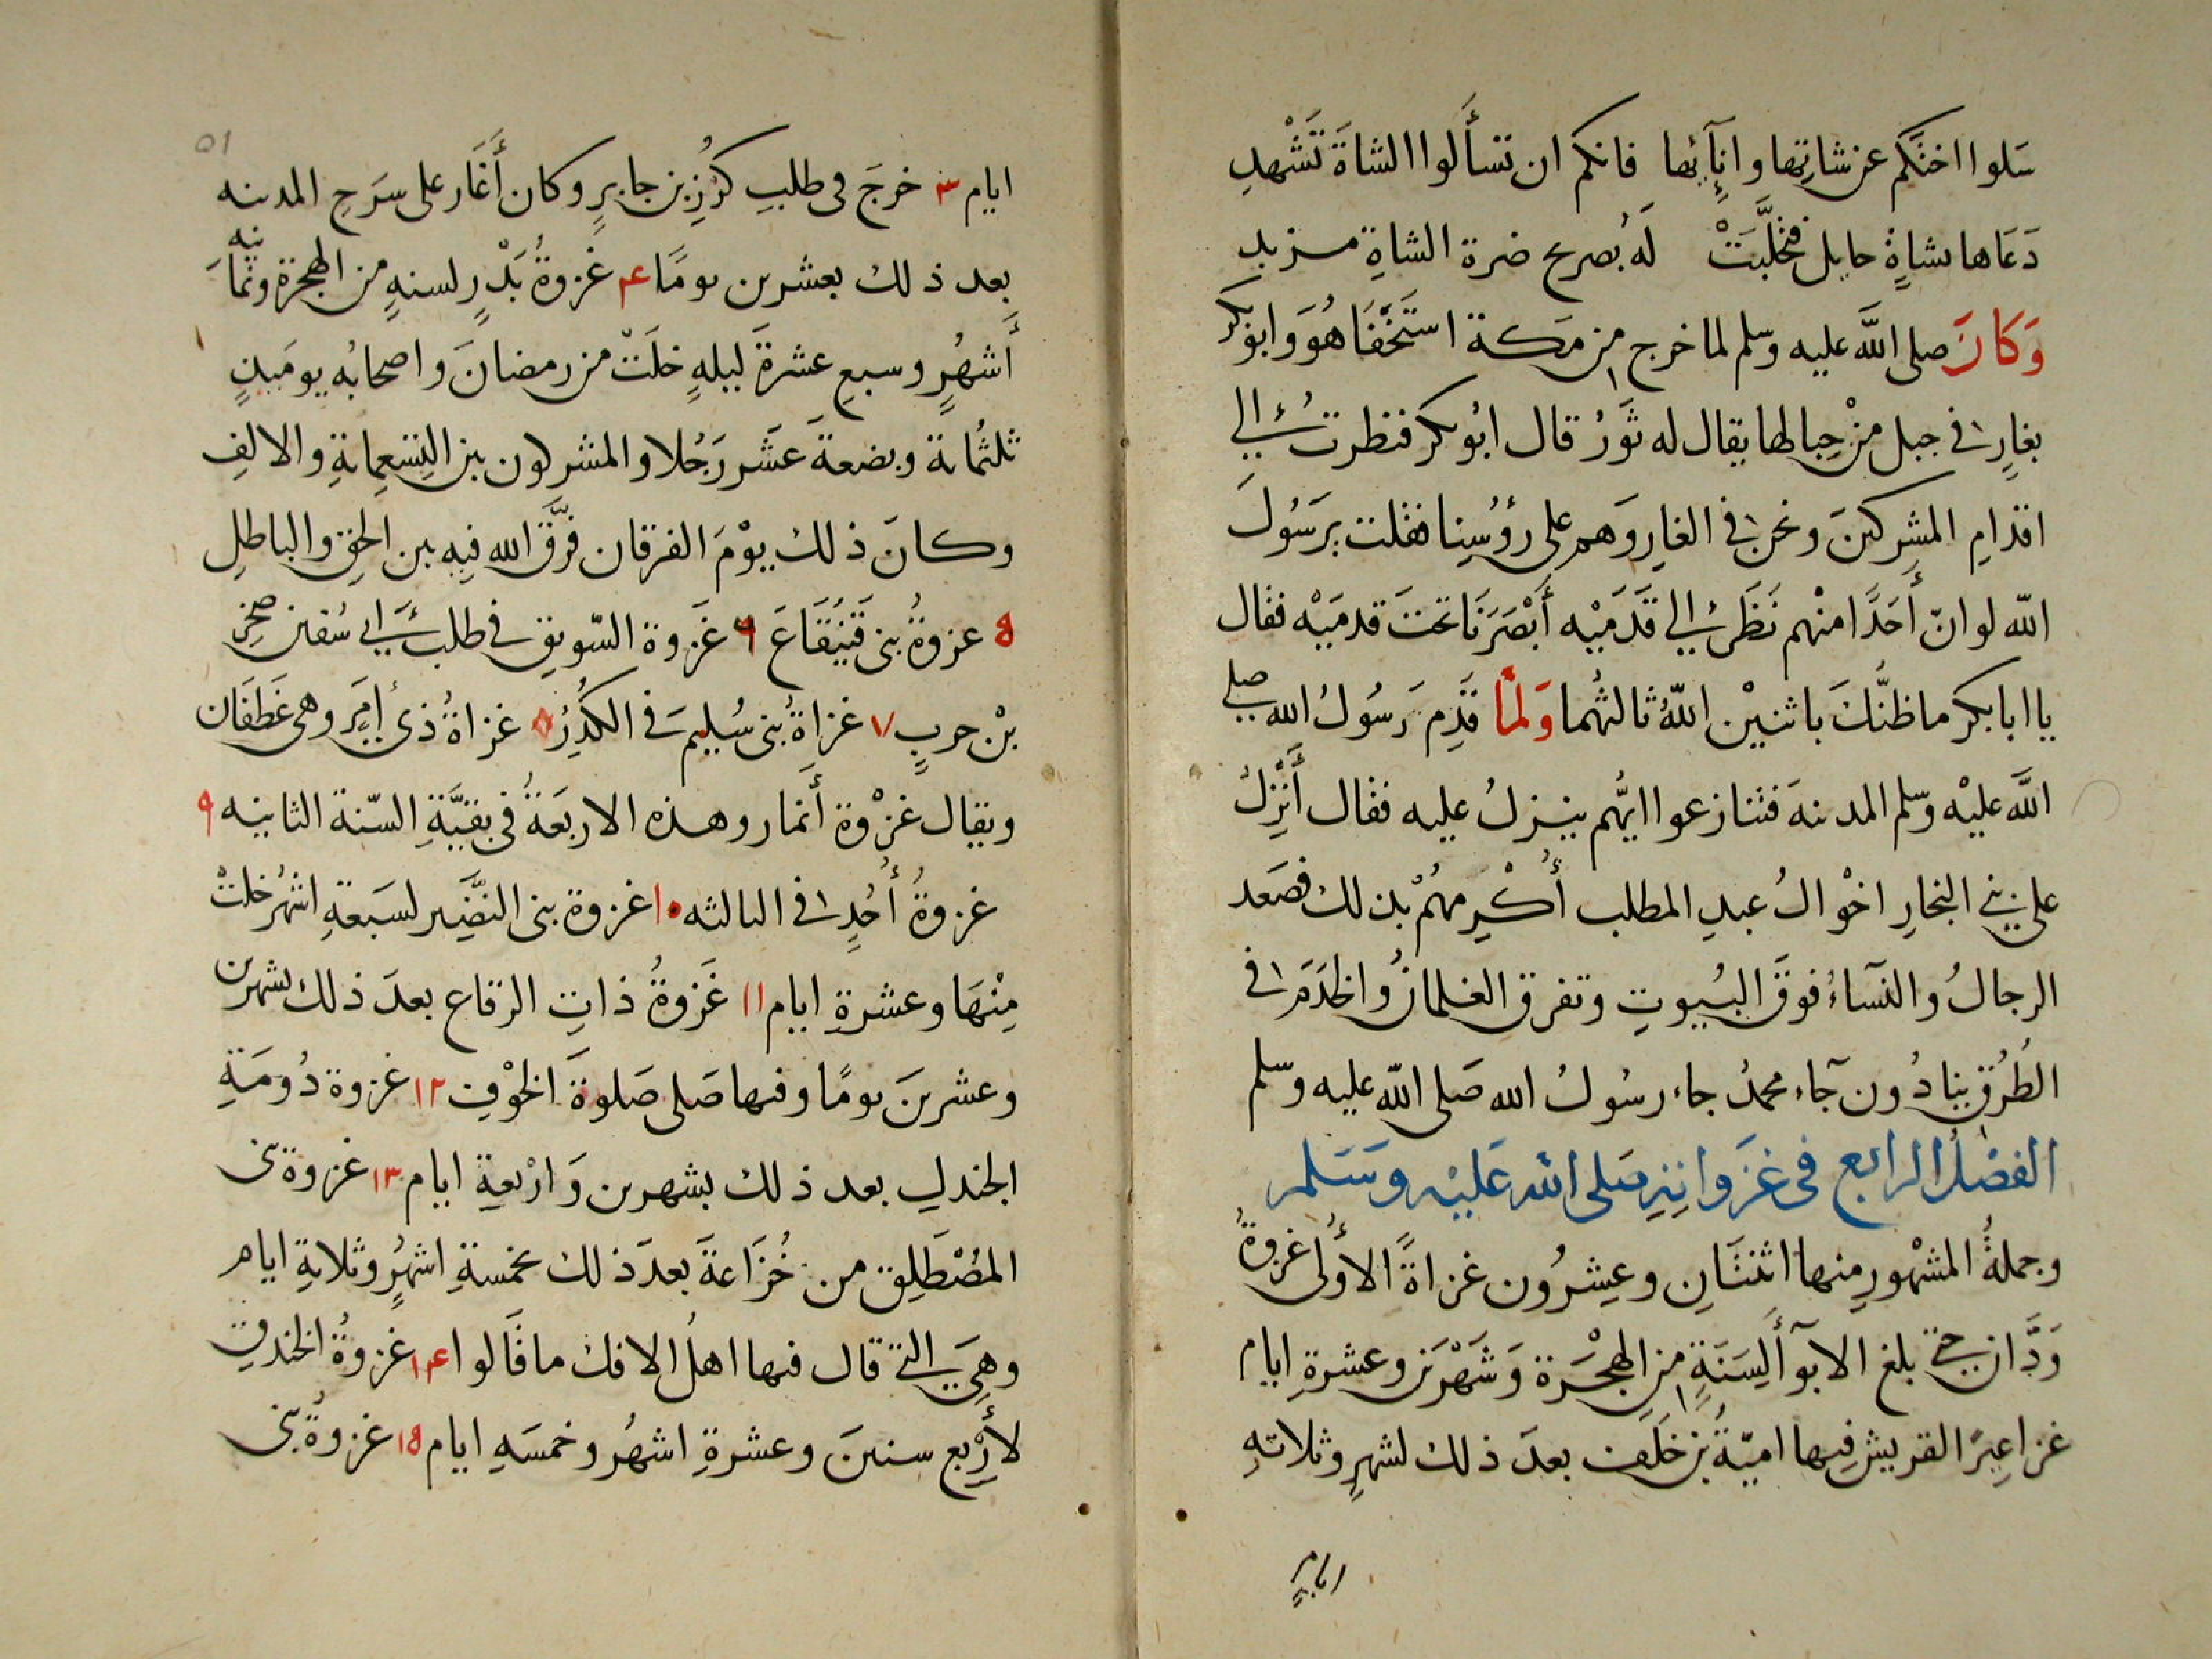 سَلوا اختَكم عن شاتِها وانِآئِها فانكم ان تسأَلوا الشاةَ تَشْهدِ
دَعَاها بشاةٍ حايل فتحلَّبَتْ لَهُ بصريح ضرة الشاةِ مزبد
وَكَانَ صلى اللَّه عليه وسلم لما خرج من مَكة استَخْفَا هُوَ وابوبكر
بغارٍ في جبل مِنْ جِبالها يقال له ثَورُ قال ابُوبكر فنظرت إلى
اقدامِ المشركينَ ونحن في الغارِ وَهم على رؤُسِنا فقلت يرَسُولَ
اللّه لو انّ أَحَدًا منْهم نَظَر إلى قَدَمَيْه أَبْصَرَنَا تحتَ قدمَيْه فقال
يا ابا بكر ما ظنُّكَ باثنيْن اللّهُ ثالثُهما وَلمّا قَدِم رَسُولُ الله صلى
اللَّه عليْه وسلم المدينهَ فتنازعوا ايُّهم ينزلُ عليه فقال أَنْزِلُ
على بني النجارِ اخْوالُ عبدِ المطلب أُكْرِمهُمْ بذلك فصَعد
الرجالُ والنّسآءُ فوقَ البُيوتِ وتفرق الغلمانُ والخدَمَ في
الطُرُقِ ينادُون جآء محمدُ جاء رسُولُ الله صَلى اللّه عليه وسلم
الفصْلُ الرابع فى غزَواتِهِ صَلى الله عَليْه وسَلم
وجملةُ المشهْورِ مِنها اثنتَانِ وعِشرُون غزاةً الأُولى غزوةُ
وَدَّان حتى بلغ الابوآء لِسَنَةٍ من الهِجْرَة وَشَهْرَين وعشرةِ ايام
غزا عيرًا لقريش فِيها اميّةُ بن خَلَف بعدَ ذلك لشهرٍ وثلاثهِ
ايامٍ
٥١
ايام ٣ خرجَ فى طلبِ كرُزِ بن جابرٍ وكان أَغَار على سَرحِ المدينه
بعد ذلك بعشرين يومًا ٤ غَزوةُ بَدْرٍ لسنهٍ من الهجرة وثمانيه
أَشهُرٍ وسبعِ عشرةَ ليلهٍ خلَتْ من رمضانَ واصحابُه يومَيذٍ
ثلثُمائة وبضعةَ عَشَر رَجُلا والمشركون بين التِسْعِمايةِ والالفِ
وكانَ ذلك يوْمَ الفرقان فرَّقَ الله فيِه بين الحقِ والباطلِ
٥ غزوةُ بنى قَيْنُقَاعَ ٦ غَزوة السّويقِ في طلب أبى سُفين صخرِ
بْن حربٍ ٧ غزاةُ بنى سُليمَ في الكُدْرِ ٨ غزاةُ ذى أَمَرَ وهى غَطَفَان
ويقال غزْوة أَنمار وهذه الاربَعَةُ فى بقيَّةِ السّنة الثانيه ٩
غزوةُ أُحُدٍ في الثالثه ١٠ غزوة بنى النضَّير لسَبعةِ اشهُر خلتْ
مِنْهَا وعشرةِ ايام ١١ غَزوةُ ذاتِ الرقاع بعدَ ذلك بشهرين
وعشرينَ يومًا وفيها صَلى صَلوةَ الخوْفِ ١٢ غزوة دُومَةِ
الجندلِ بعد ذلك بشهرين وَارْبعةِ ايام ١٣ غزوة بنى
المصْطَلِقِ من خُزَاعةَ بعدَ ذلك بخمسةِ اشهُرٍ وثلاثةِ ايام
وهِيَ التى قال فيها اهلُ الافك ما قَالوا ١٤ غزوةُ الخندقِ
لأَرْبع سنينَ وعشرةِ اشهُر وخمسَهِ ايام ١٥ غزوةُ بنى